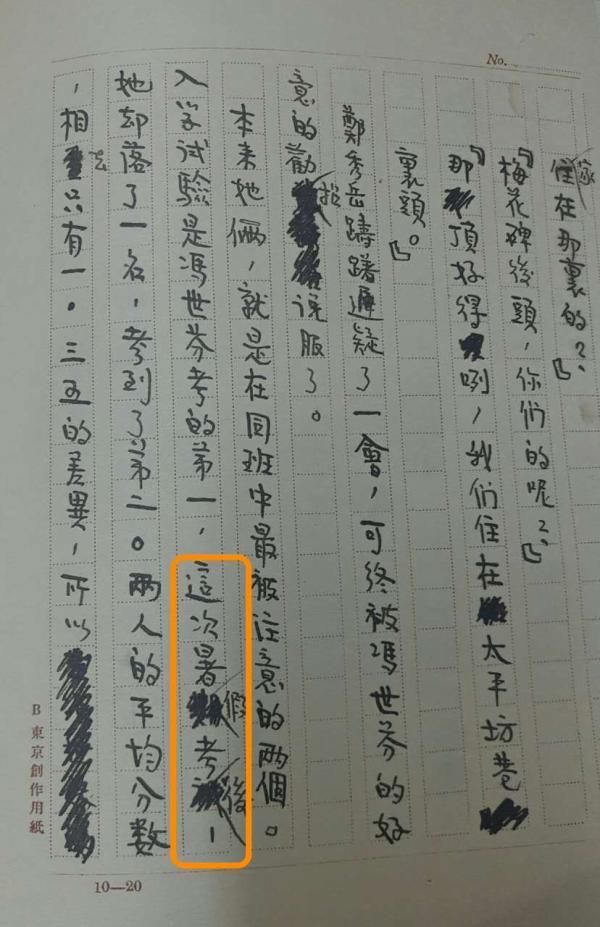 No.
家住在那裏的？』
『梅花碑後頭，你們的呢？』
『那頂好得咧，我們住在太平坊巷
裏頭。』
鄭秀岳躊躇遲疑了一會，可終被馮世芬的好
意的勸招说服了。
本来她俩，就是在同班中最被注意的两個。
入学试驗是馮世芬考的第一，這次暑假考後，
她却落了一名，考到了第二。两人的平均分数
，相去只有一。三五的差異，所以
B 東京創作用紙
10—20